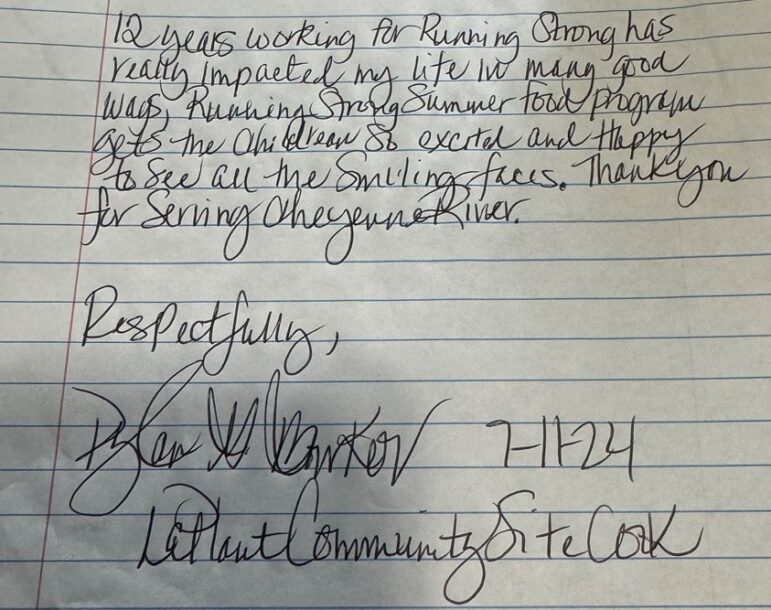 12 years working for Running Strong has
really impacted my life in many good
ways, Running Strong Summer food program
gets the Childrean So excited and Happy
to See all the Smiling faces. Thank you
for Serving Cheyenne River.
Respectfully,
Dylan 7-11-24
LaPlant Community Site Cook